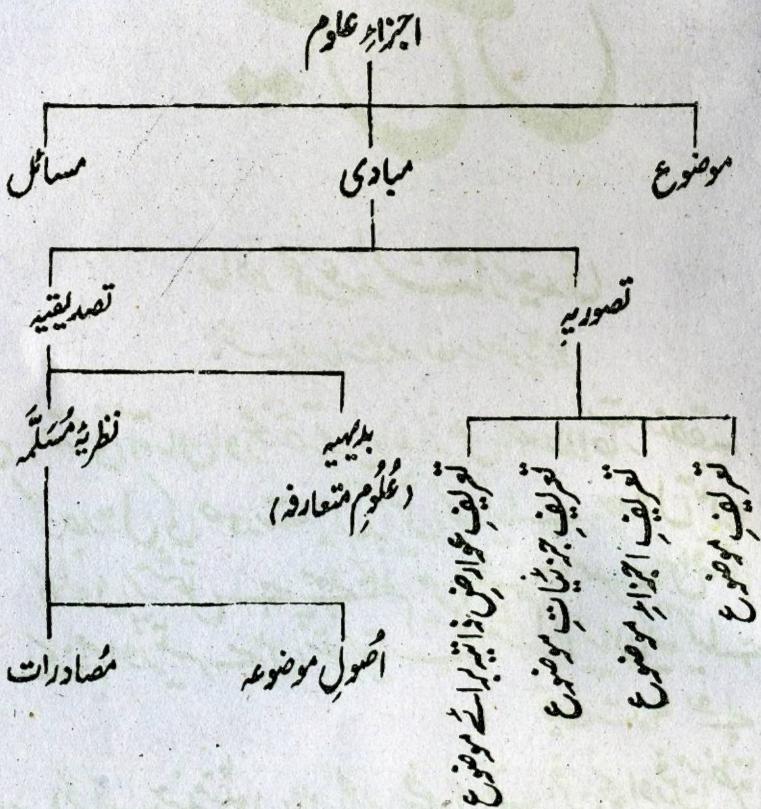 اجزاءِ علوم
موضوع
مبادی
مسائل
تصوریہ
تصدیقیہ
تعریفِ موضوع
تعریفِ اجزاءِ موضوع
تعریفِ جزئیاتِ موضوع
تعریفِ عوارضِ ذاتیہ برائے موضوع
بدیہیہ
(عُلُومِ متعارفہ)
نظریۂ مُسَلَّمَہ
اُصولِ موضوعہ
مُصادرات